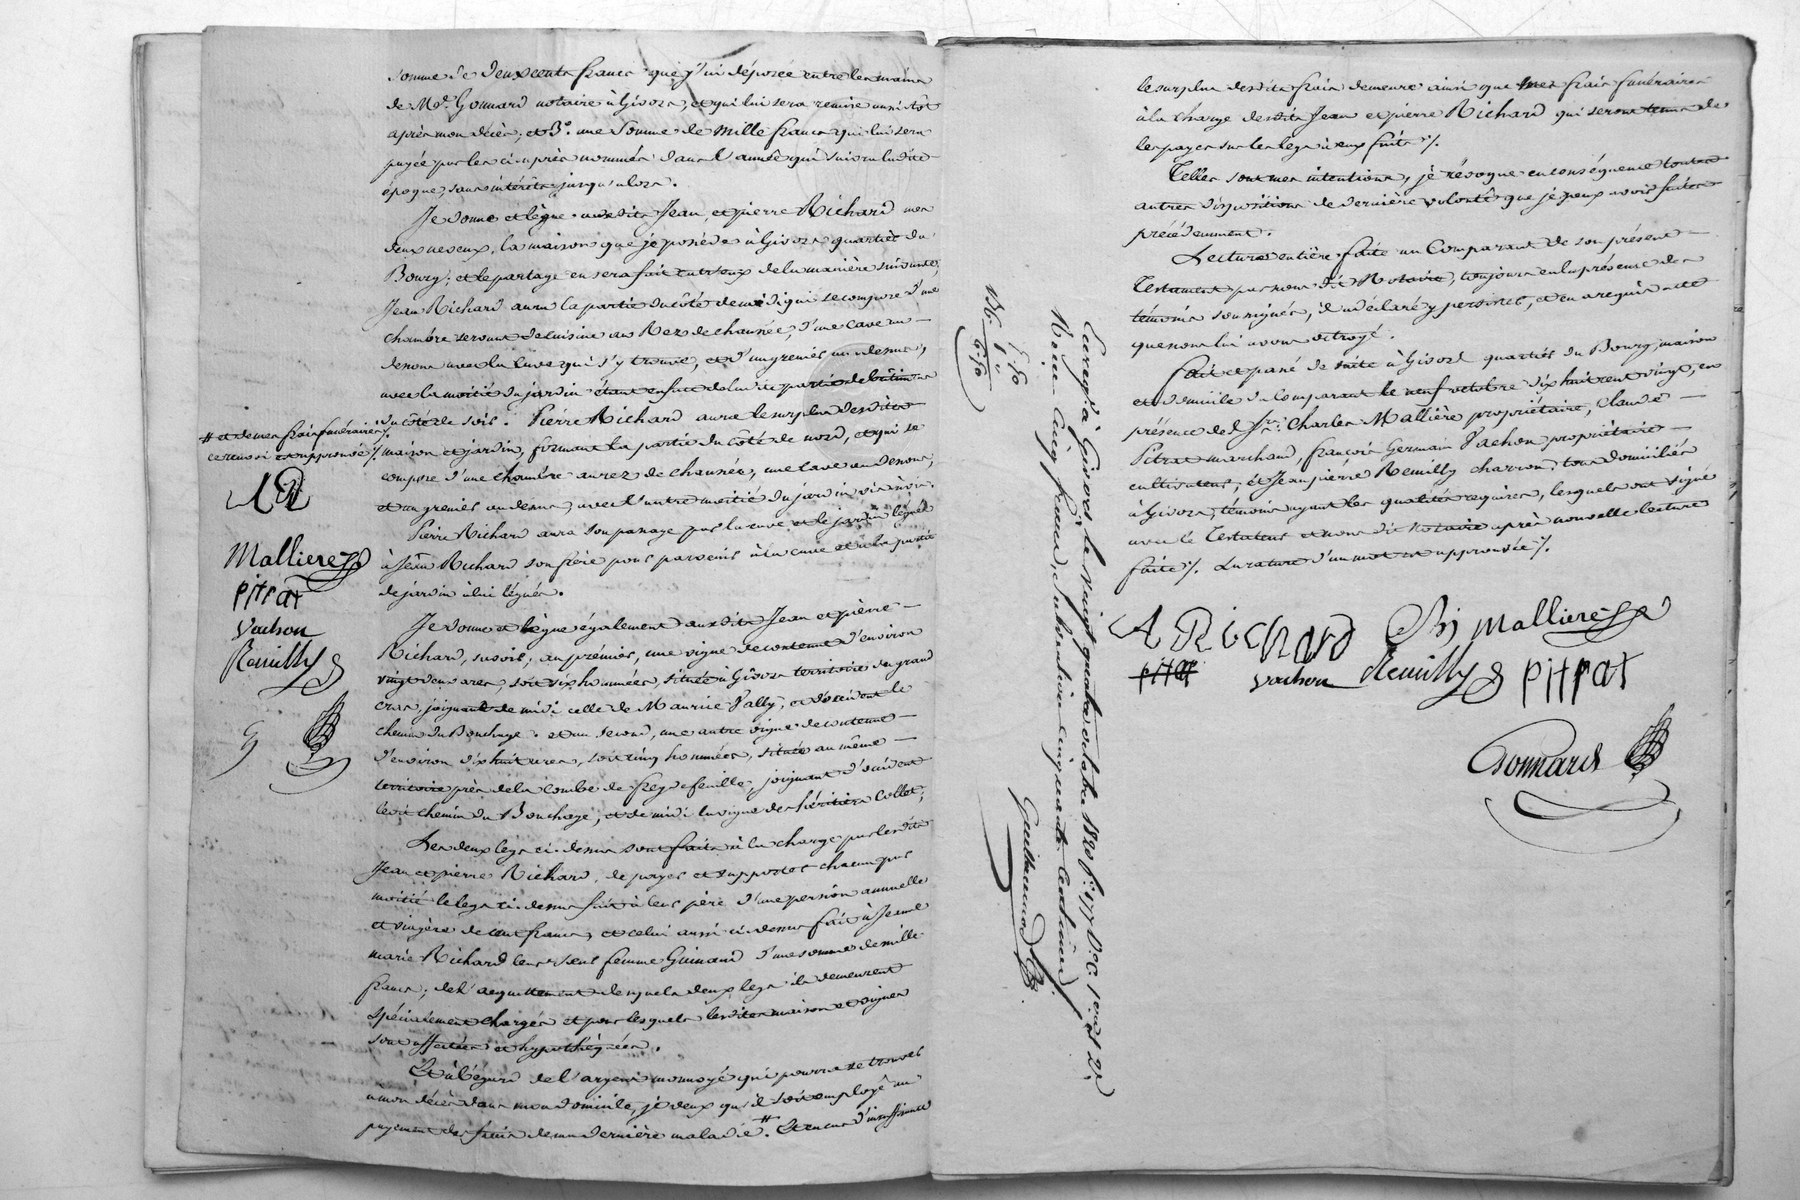 somme de deux cents francs que j'ai déposée entre les mains
de Mᵉ. Gonnard notaire à Givors, et qui lui sera remise aussitôt
après mon décès, et 3°. une somme de mille francs qui lui sera
payée par les ci-après nommés dans l'année qui suivra ladite
époque, sans intérêts jusqu'alors.
Je donne et lègue auxdits Jean, et pierre Richard mes
deux neveux, la maison que je possède à Givors quartier du
Bourg; et le partage en sera fait entr'eux de la manière suivante,
Jean Richard aura la partie du côté de midi qui se compose d'une
chambre servant de cuisine au Rez de chaussée, d'une cave au-
dessous avec la cuve qui s'y trouve, et d'un grenier au-dessus,
avec la moitié du jardin étant en face de ladite partie de bâtiment
du côté de soir. Pierre Richard aura le surplus desdites
maison et jardin, formant la partie du côté de nord, et qui se
compose d'une chambre au rez de chaussée, une cave au dessous,
et un grenier au dessus, avec l'autre moitié du jardin vis à vis.
Pierre Richard aura son passage par la cave et le jardin légués
à Jean Richard son frère pour parvenir à la cave et à la partie
de jardin à lui légués.
Je donne et lègue également auxdits Jean et pierre
Richard, savoir; au premier, une vigne de contenue d'environ
vingt deux ares, soit six hommées, située à Givors territoire du grand
cras, joignant de midi celle de Maurice Vally, et d'occident le
chemin du Bouchage. et au second, une autre vigne de contenue
d'environ dix huit ares, soit cinq hommées, située au même
territoire près de la combe de freydefeuille, joignant d'occident
ledit chemin du Bouchage, et de midi la vigne des héritiers Collet;
Les deux legs ci-dessus sont faits à la charge par lesdits
Jean et pierre Richard, de payer et supporter chacun par
moitié le legs ci-dessus fait à leur père d'une pension annuelle
et viagère de cent francs, et celui aussi ci-dessus fait à Jeanne
marie Richard leur sœur femme Guinand d'une somme de mille
francs; de l'acquittement desquels deux legs ils demeurent
spécialement chargés et pour lesquels lesdites maison et vignes
sont affectées et hypothéquées.
Et à l'égard de l'argent monnoyé qui pourra se trouver
à mon décès dans mon domicile, je veux qu'il soit employé au
payement des frais de ma dernière maladie.# Et en cas d'insuffisance
# et de mes frais funéraires
ce renvoi est approuvé ⁒.
AR
Malliere
pitrat
Vachon
Remilly
G
le surplus desdits frais demeure ainsi que mes frais funéraires
à la charge desdits Jean et pierre Richard qui seront tenus de
les payer sur les legs à eux faits ⁒.
Telles sont mes intentions, je révoque en conséquence toutes
autres dispositions de dernière volonté que je peux avoir faites
précédemment.
Lecture entière faite au Comparant de son présent
Testament par nous dit Notaire, toujours en la présence des
témoins soussignés, il a déclaré y persister, et en a requis acte
que nous lui avons octroyé.
Fait et passé de suite à Givors quartier du Bourg, maison
et domicile du comparant le neuf octobre dix huit cent vingt, en
présence de Sʳˢ. Charles Mallière propriétaire, Claude
Pitrat marchand, françois Germain Vachon propriétaire
cultivateur, et Jean pierre Remilly charron, tous domiciliés
à Givors, témoins ayant les qualités requises, lesquels ont signé
avec le Testateur et nous dit Notaire après nouvelle lecture
faite ⁒. La rature d'un mot est approuvée ⁒.
A Richard Ch Malliere
pitrat Vachon Remilly pitrat
Gonnard
Enregᵗ. à Givors le vingt quatre octobre 1820 f°. 177 Vᵒ C. 1ᵉʳ et 2.
Reçu Cinq francs, subvention cinquante centimes
Guilhermond